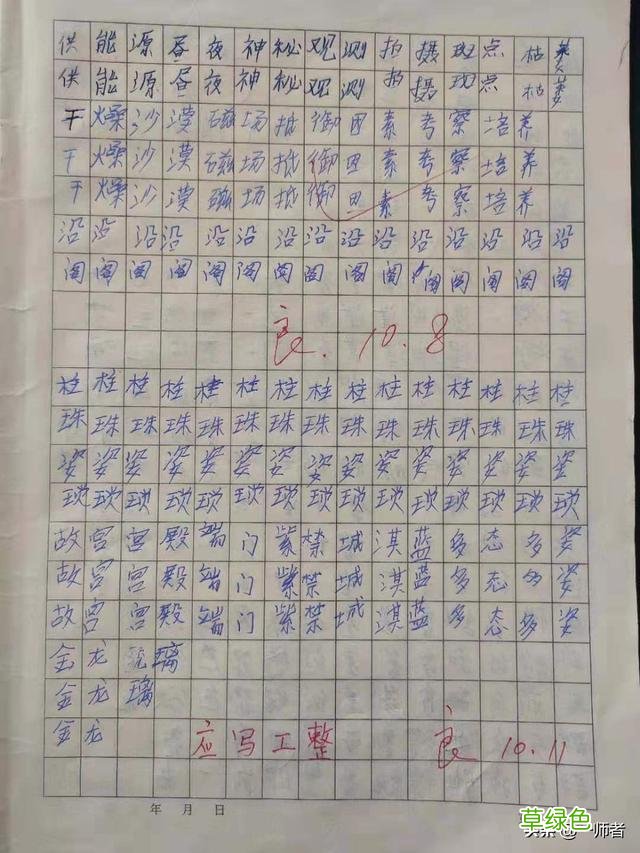 供能源昼夜神秘观测拍摄斑点枯萎
供能源昼夜神秘观测拍摄斑点枯萎
干燥沙漠磁场抵御因素考察培养
干燥沙漠磁场抵御因素考察培养
干燥沙漠磁场抵御因素考察培养
沿沿沿沿沿沿沿沿沿沿沿沿沿沿沿
阁阁阁阁阁阁阁阁阁阁阁阁阁阁阁
良.10.8
柱柱柱柱柱柱柱柱柱柱柱柱柱柱柱
珠珠珠珠珠珠珠珠珠珠珠珠珠珠珠
姿姿姿姿姿姿姿姿姿姿姿姿姿姿姿
琐琐琐琐琐琐琐琐琐琐琐琐琐琐琐
故宫宫殿端门紫禁城湛蓝多态多姿
故宫宫殿端门紫禁城湛蓝多态多姿
故宫宫殿端门紫禁城湛蓝多态多姿
金龙琉璃
金龙璃
金龙
应写工整 良10.11
年 月 日
草绿色
师者